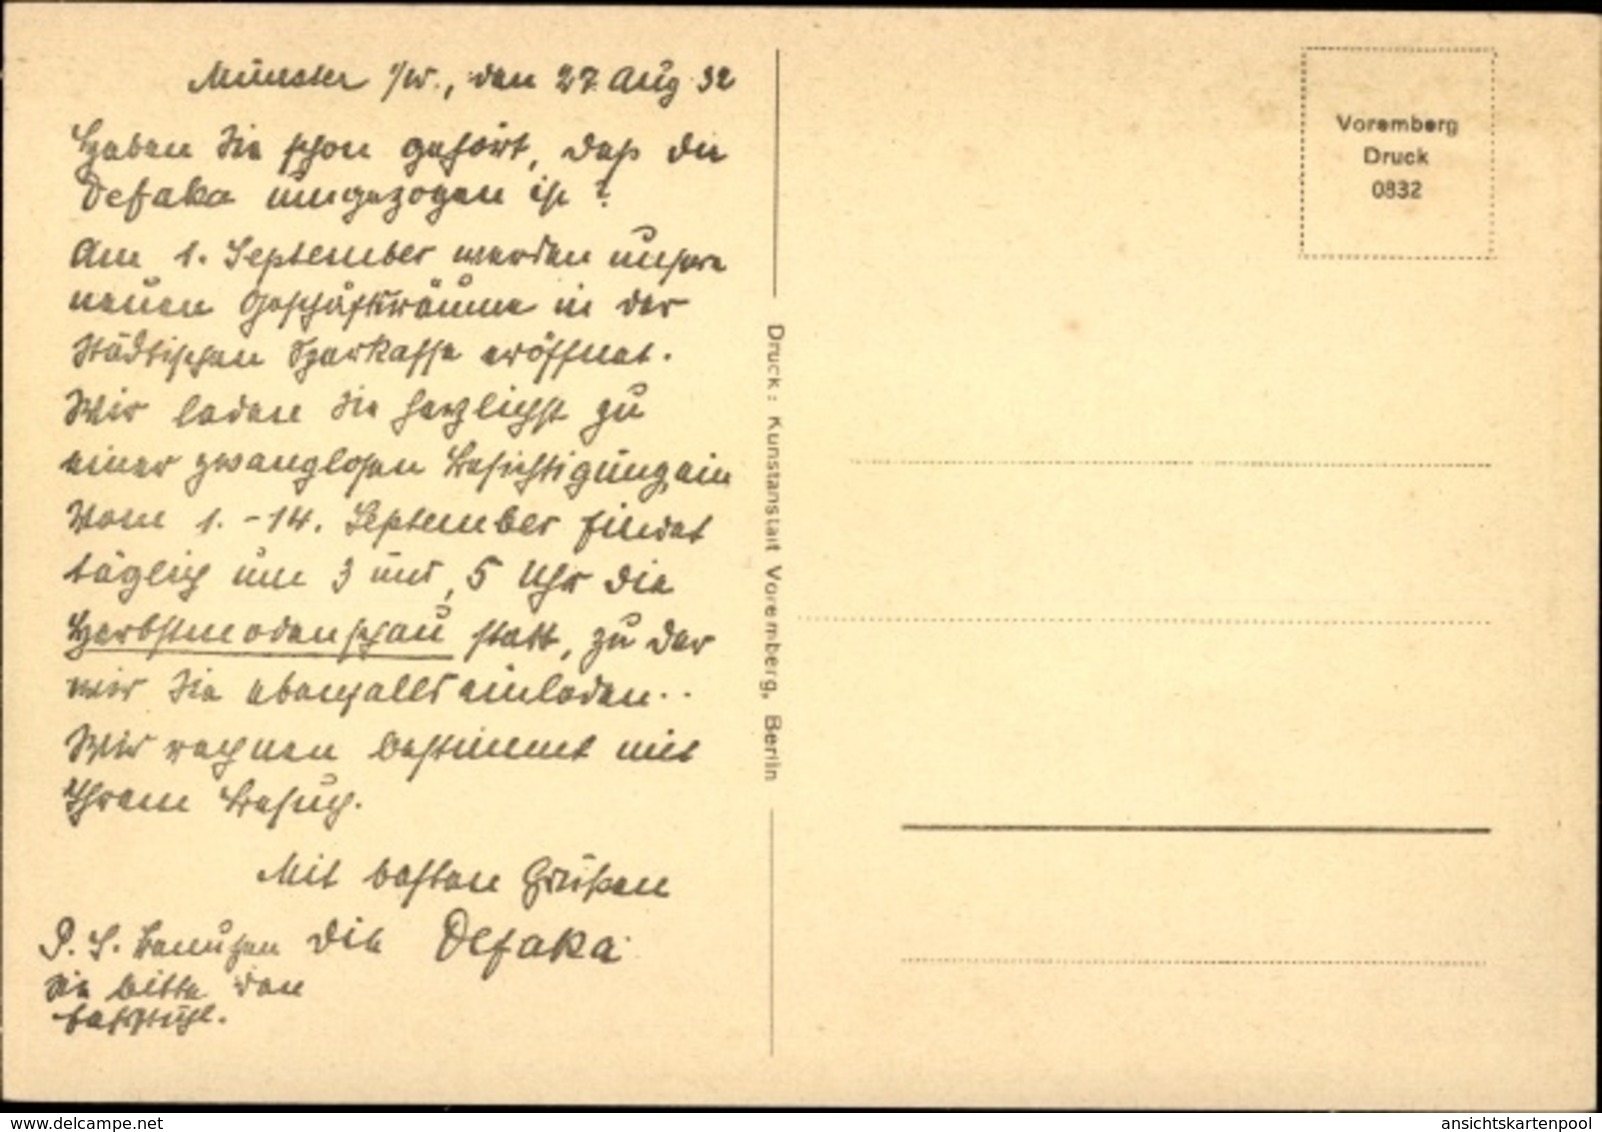 Münster i/W., den 27. Aug. 32
Haben Sie schon gehört, daß die
Defaka umgezogen ist?
Am 1. September werden unsere
neuen Geschäftsräume in der
Städtischen Sparkasse eröffnet.
Wir laden Sie herzlichst zu
einer zwanglosen Besichtigung ein
Vom 1.-14. September findet
täglich um 3 und 5 Uhr die
Herbstmodenschau statt, zu der
wir Sie ebenfalls einladen..
Wir rechnen bestimmt mit
Ihrem Besuch.
Mit besten Grüßen
Die Defaka
P. S. Benutzen
Sie bitte den
Fahrstuhl.
Druck: Kunstanstalt Voremberg, Berlin
Voremberg
Druck
0832
www.delcampe.net
ansichtskartenpool